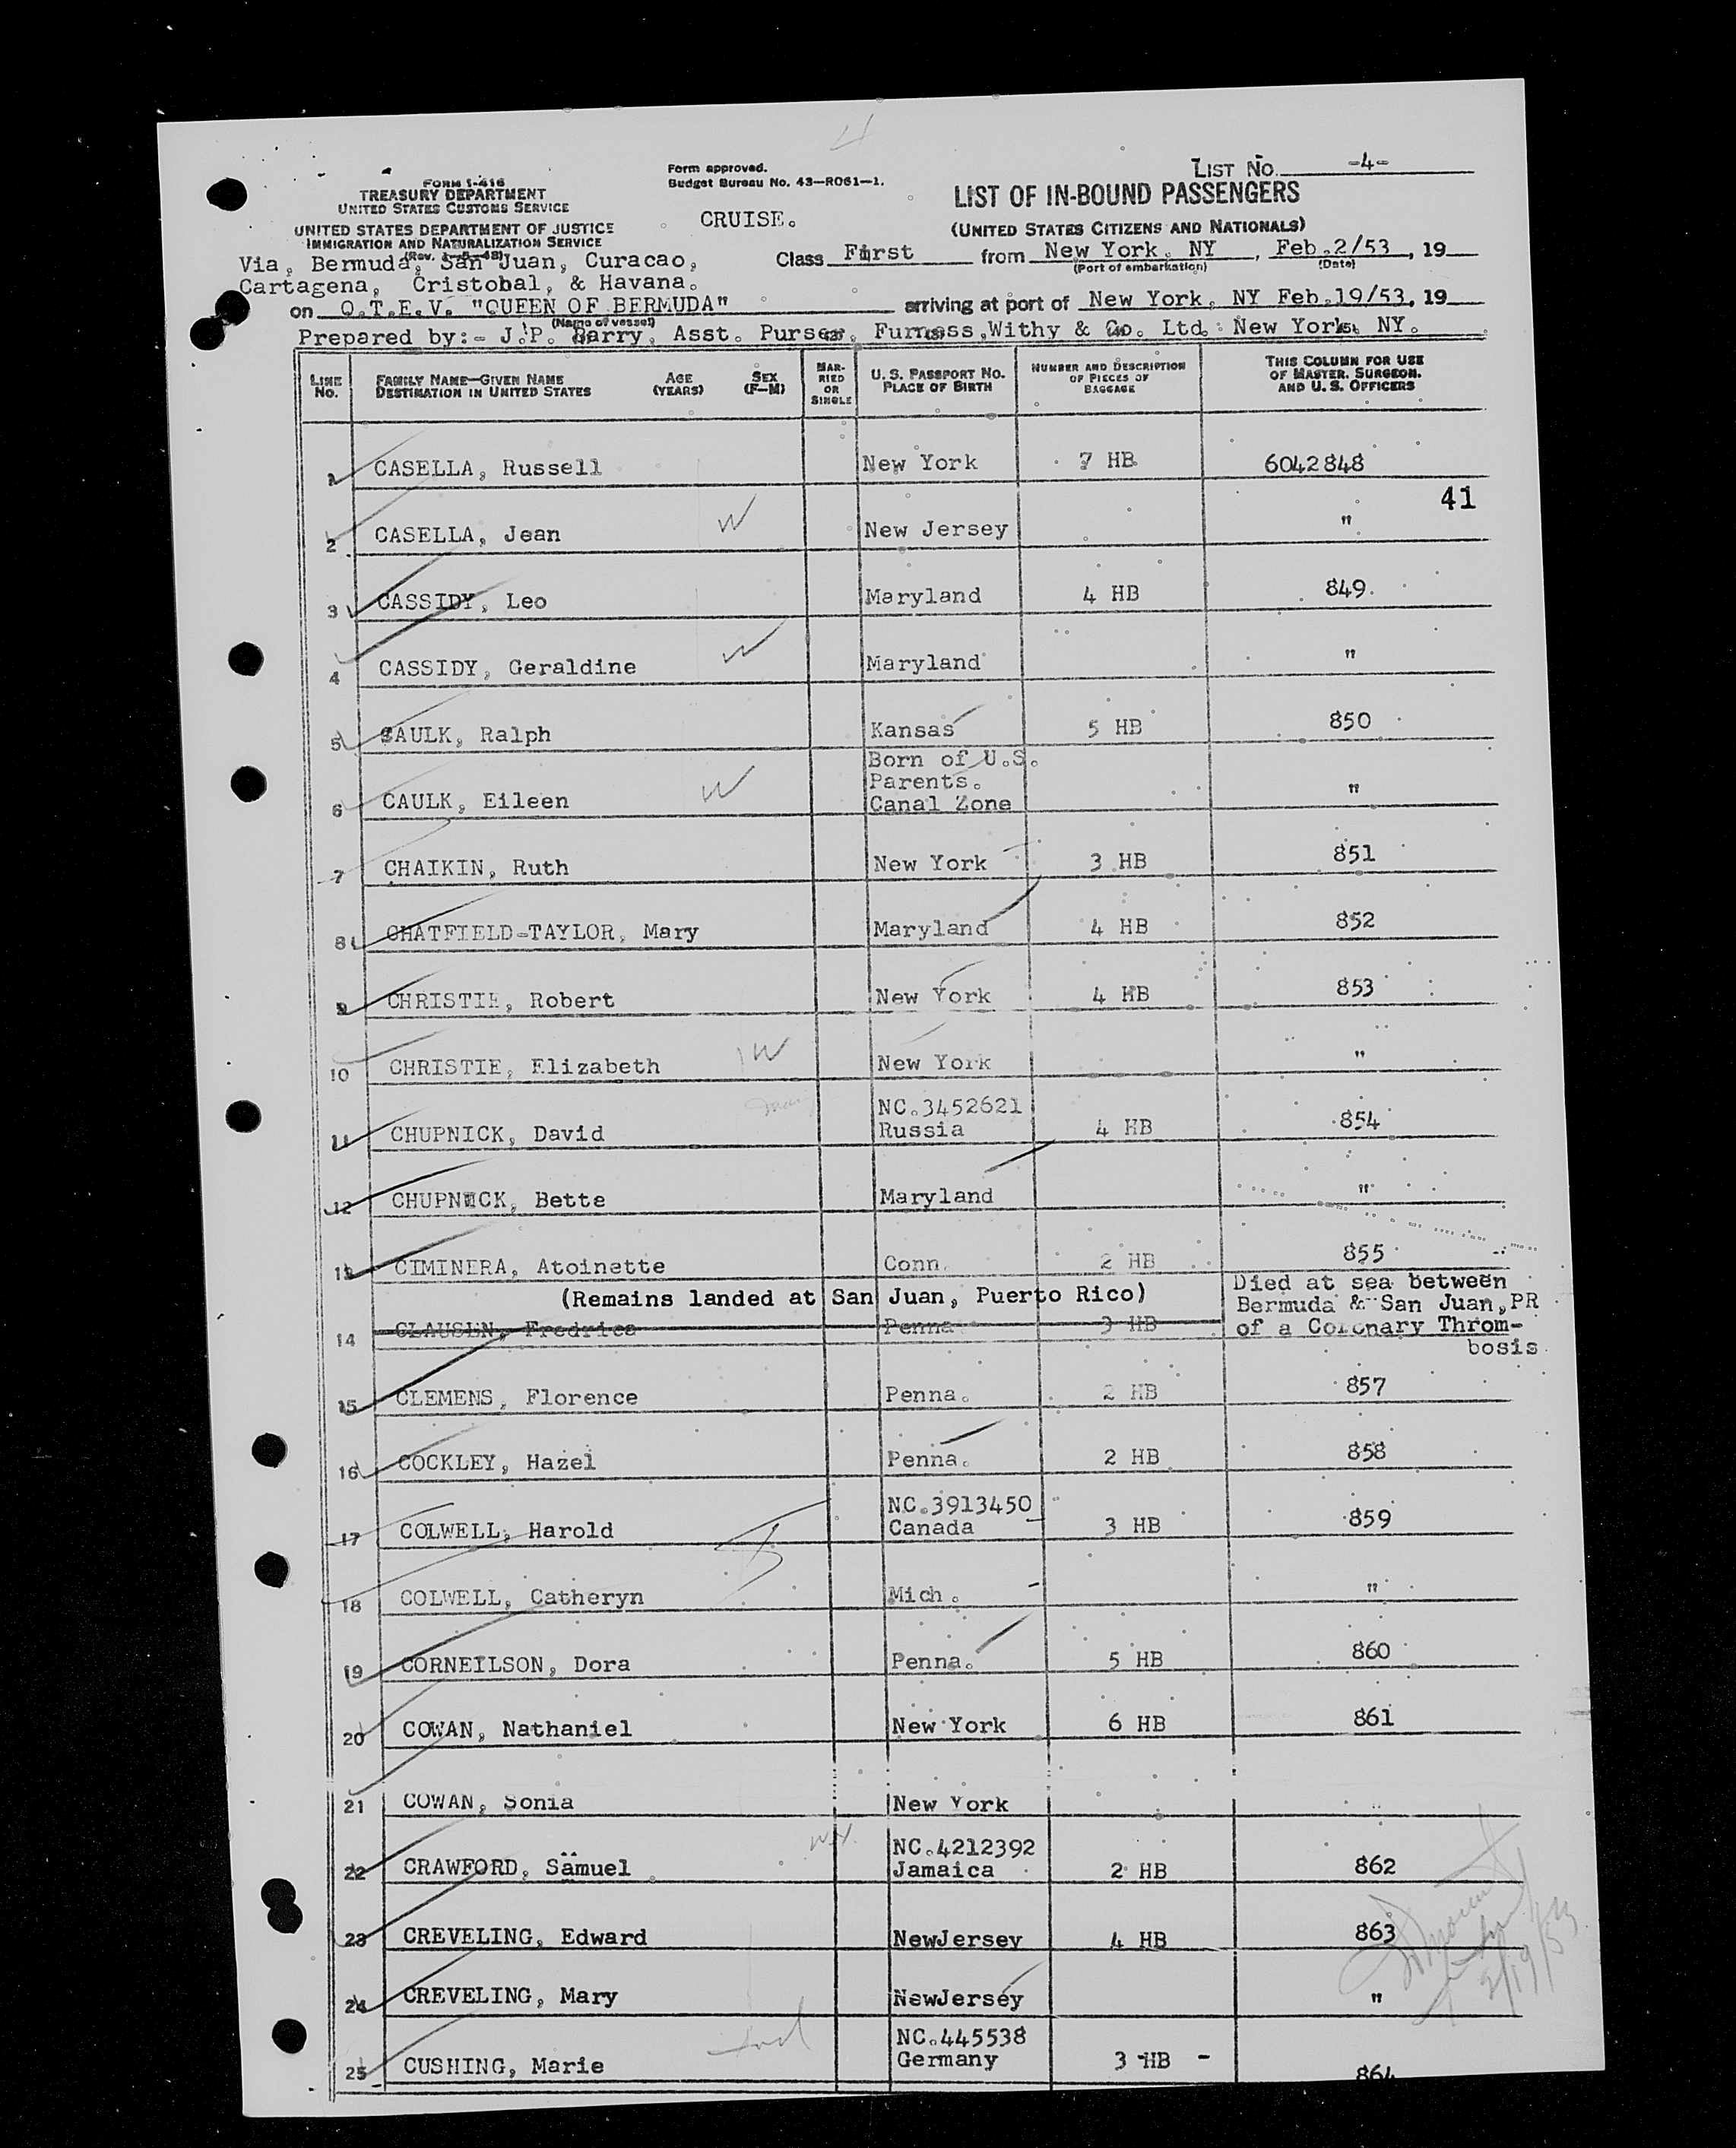 LIST NO. -4-
FORM I-416
TREASURY DEPARTMENT
UNITED STATES CUSTOMS SERVICE
UNITED STATES DEPARTMENT OF JUSTICE
IMMIGRATION AND NATURALIZATION SERVICE
Form approved.
Budget Bureau No. 43-R061-1.
CRUISE.
LIST OF IN-BOUND PASSENGERS
(UNITED STATES CITIZENS AND NATIONALS)
Via, Bermuda, San Juan, Curacao,
Cartagena, Cristobal, & Havana.
Class First from New York, NY, Feb.2/53, 19
(Port of embarkation) (Date)
on Q.T.E.V. "QUEEN OF BERMUDA" arriving at port of New York, NY Feb.19/53, 19
(Name of vessel)
Prepared by:- J.P. Barry, Asst. Purser, Furness, Withy & Co. Ltd. New York, NY.
LINE No. FAMILY NAME-GIVEN NAME DESTINATION IN UNITED STATES AGE (YEARS) SEX (F-M) MARRIED OR SINGLE U. S. PASSPORT NO. PLACE OF BIRTH NUMBER AND DESCRIPTION OF PIECES OF BAGGAGE THIS COLUMN FOR USE OF MASTER, SURGEON, AND U. S. OFFICERS
1 CASELLA, Russell New York 7 HB 6042848
41
2 CASELLA, Jean W New Jersey "
3 CASSIDY, Leo Maryland 4 HB 849
4 CASSIDY, Geraldine W Maryland "
5 CAULK, Ralph Kansas 5 HB 850
Born of U.S.
Parents.
6 CAULK, Eileen W Canal Zone "
7 CHAIKIN, Ruth New York 3 HB 851
8 CHATFIELD-TAYLOR, Mary Maryland 4 HB 852
9 CHRISTIE, Robert New York 4 HB 853
10 CHRISTIE, Elizabeth W New York "
NC.3452621
11 CHUPNICK, David Russia 4 HB 854
12 CHUPNICK, Bette Maryland "
13 CIMINERA, Atoinette Conn. 2 HB 855
(Remains landed at San Juan, Puerto Rico) Died at sea between
Bermuda & San Juan, PR
14 CLAUSEN, Fredrica Penna 3 HB of a Coronary Throm-
bosis
15 CLEMENS, Florence Penna. 2 HB 857
16 COCKLEY, Hazel Penna. 2 HB 858
NC.3913450
17 COLWELL, Harold Canada 3 HB 859
18 COLWELL, Catheryn Mich. "
19 CORNEILSON, Dora Penna. 5 HB 860
20 COWAN, Nathaniel New York 6 HB 861
21 COWAN, Sonia New York "
NC.4212392
22 CRAWFORD, Samuel Jamaica 2 HB 862
23 CREVELING, Edward NewJersey 4 HB 863
24 CREVELING, Mary NewJersey "
2/19/53
NC.445538
25 CUSHING, Marie Germany 3 HB - 864